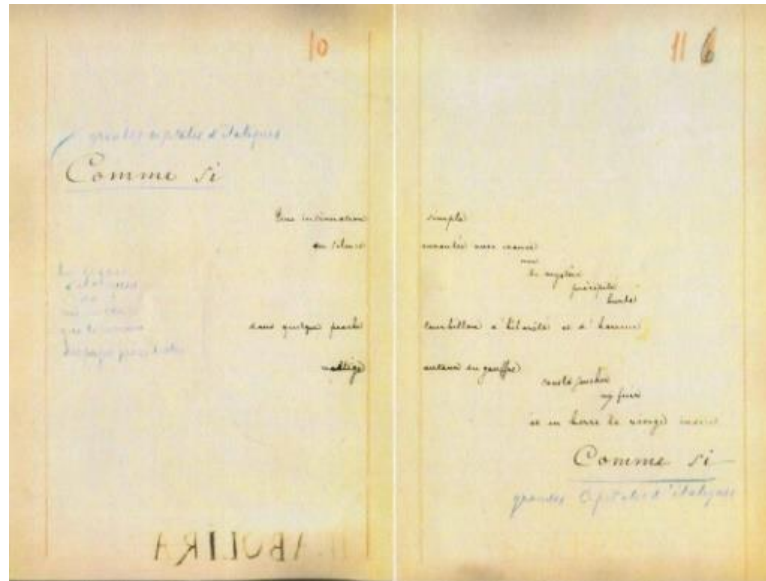 10
grandes capitales d'italiques
Comme si
Une insinuation
au silence
d'italiques
dans quelque proche
voltige
ABOLIRA
11 6
simple
enroulée avec ironie
ou
le mystère
précipité
hurlé
tourbillon d'hilarité et d'horreur
autour du gouffre
sans le joncher
ni fuir
et en berce le vierge indice
Comme si
grandes Capitales d'italiques